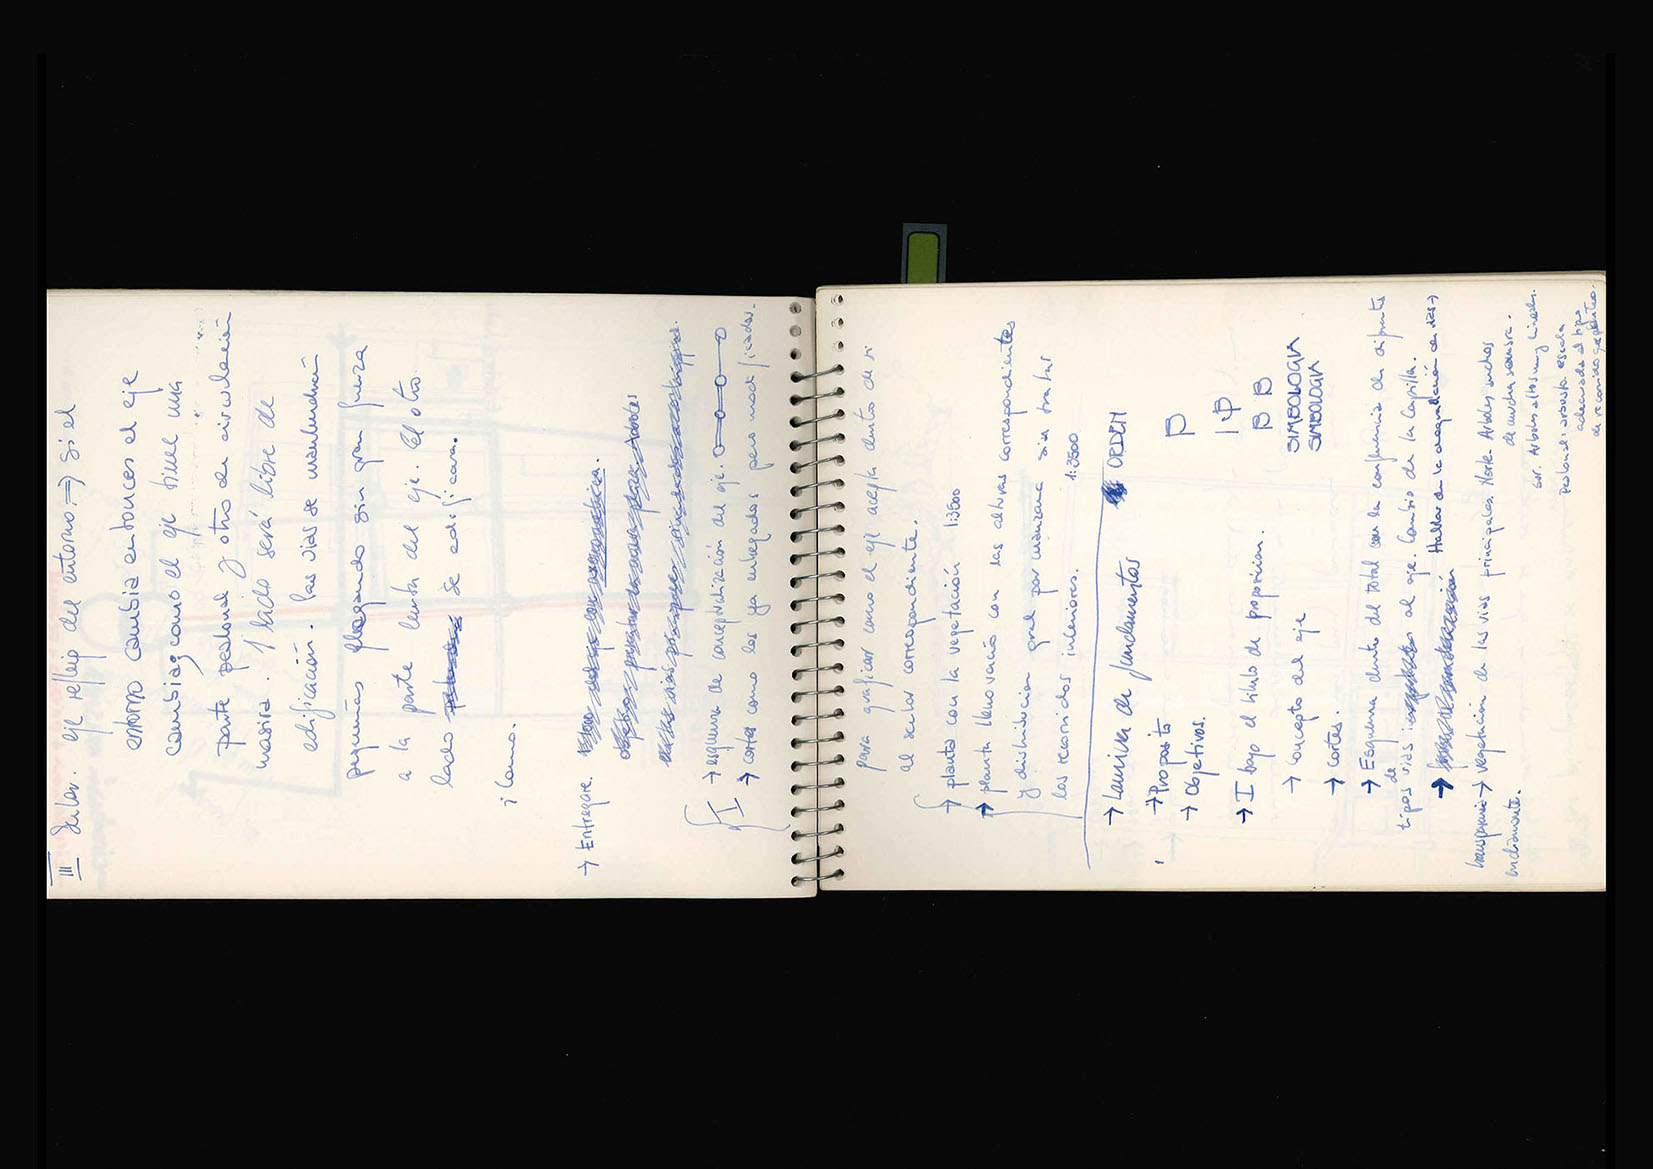 III
eje reflejo del entorno. ⇒ si el
entorno cambia entonces el eje
cambia, como el eje tiene una
parte peatonal y otra de circulación
1 lado será libre de
edificación. Las vias se mantendrán
pequeñas sin gran fuerza
a la parte lenta del eje. El otro
lado se edificara.
→ Entregar.
I
→ esquema de conceptualización del eje.
→ cortes como los ya entregados pero modificados.
para graficar como el eje acepta dentro de si
al sector correspondiente.
→ planta con la vegetación 1:3500
→ planta lleno vacio con las alturas correspondientes
y distribucion gral por manzana sin tratar
los recorridos interiores. 1:3500
→ Lamina de fundamentos ORDEN
→ Proposito
→ Objetivos.
→ I bajo el titulo de proposicion.
→ Concepto del eje
→ Cortes.
SIMBOLOGIA
SIMBOLOGIA
→ Esquema dentro del total con la confluencia de diferentes
tipos de vias al eje. Cambio de la Capilla.
→ Hablar de la
→ vegetación de las vias principales. Norte. Arboles anchos
de mucha sombra.
Arboles altos muy lineales.
Peatonal: arbusto escala
adecuada al tipo
de recorrido